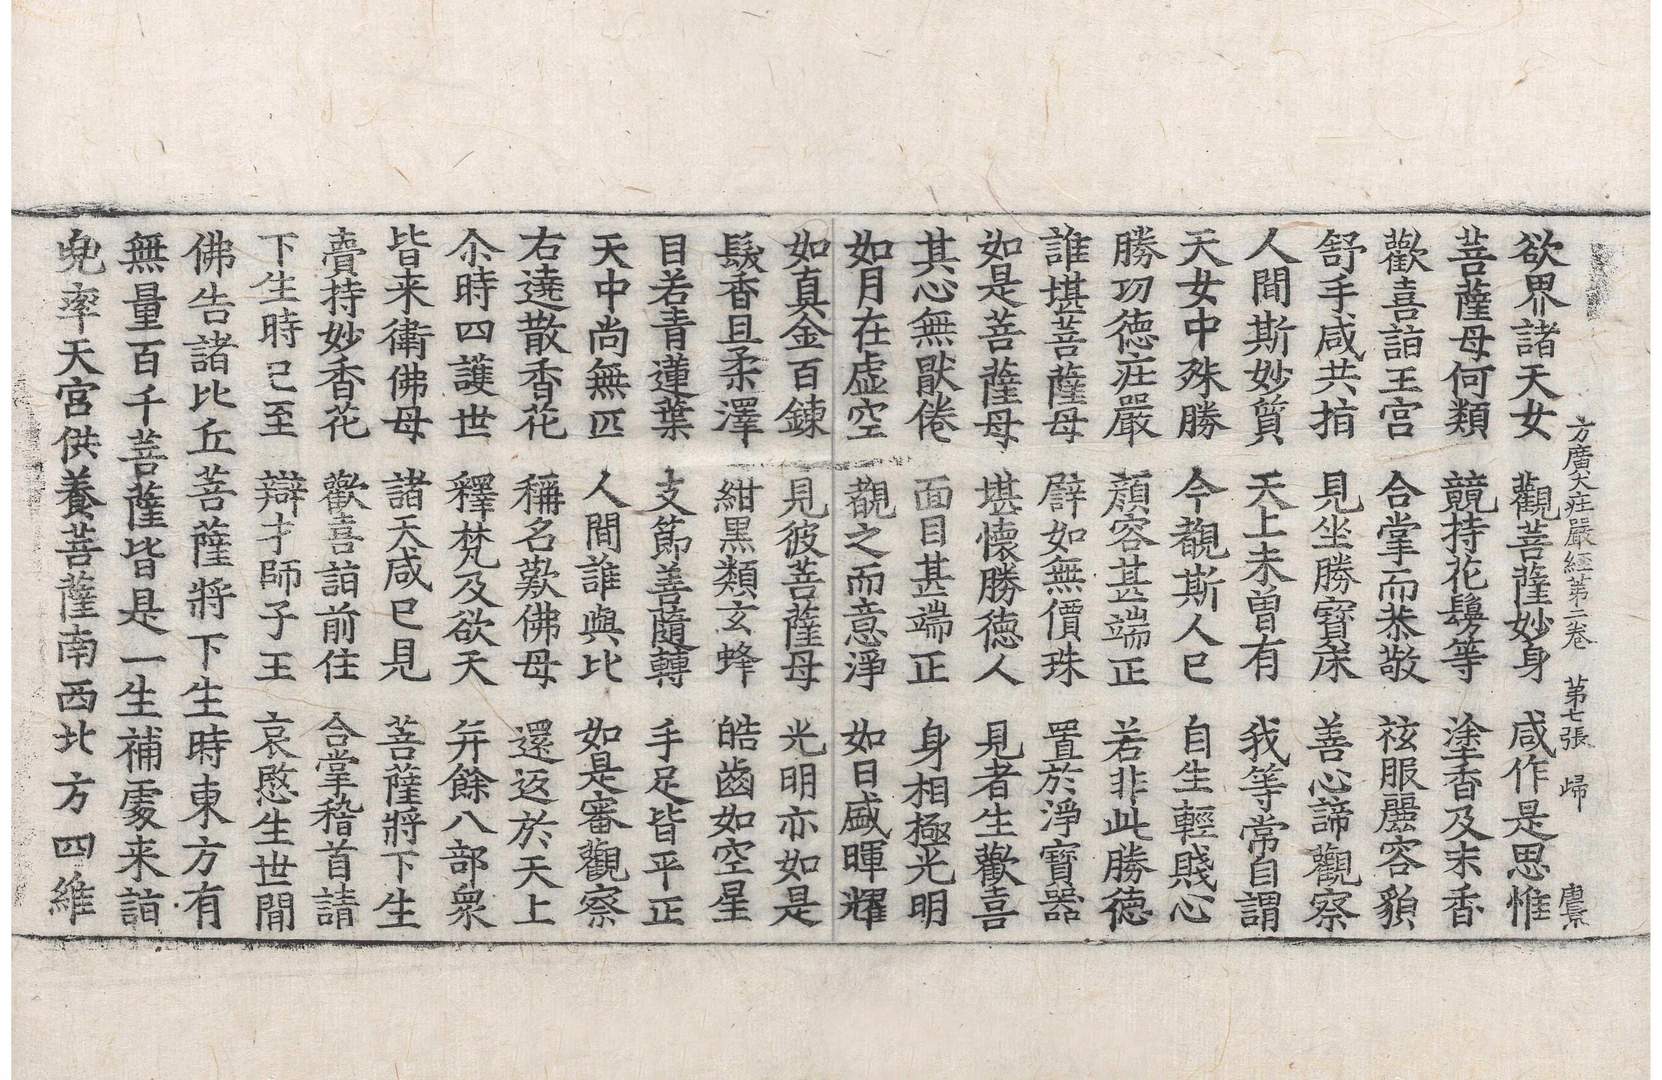 方廣大庄嚴經第二卷 第七張 歸
欲界諸天女 觀菩薩妙身 咸作是思惟
菩薩母何類 競持花鬘等 塗香及末香
歡喜詣王宮 合掌而恭敬 袨服麗容貌
舒手咸共指 見坐勝寶床 善心諦觀察
人間斯妙質 天上未曾有 我等常自謂
天女中殊勝 今覩斯人已 自生輕賤心
勝功德庄嚴 顏容甚端正 若非此勝德
誰堪菩薩母 譬如無價珠 置於淨寶器
如是菩薩母 堪懷勝德人 見者生歡喜
其心無猒倦 面目甚端正 身相極光明
如月在虛空 覩之而意淨 如日盛暉耀
如真金百鍊 見彼菩薩母 光明亦如是
髮香且柔澤 紺黑類玄蜂 皓齒如空星
目若青蓮葉 支節善隨轉 手足皆平正
天中尚無匹 人間誰與比 如是審觀察
右遶散香花 稱名歎佛母 還返於天上
尒時四護世 釋梵及欲天 幷餘八部衆
皆来衛佛母 諸天咸已見 菩薩將下生
賷持妙香花 歡喜詣前住 合掌稽首請
下生時已至 辯才師子王 哀愍生世間
佛告諸比丘菩薩將下生時東方有
無量百千菩薩皆是一生補處来詣
兜率天宮供養菩薩南西北方四維